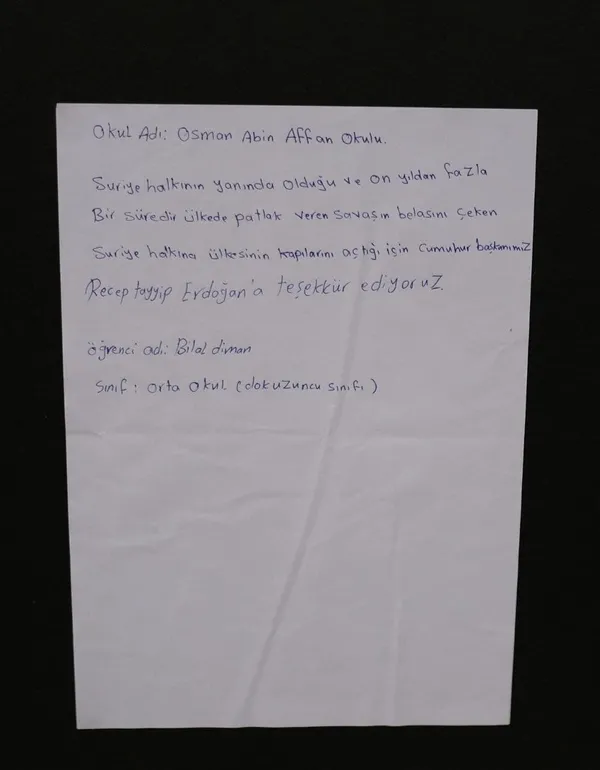 Okul Adı: Osman Abin Affan Okulu.
Suriye halkının yanında olduğu ve on yıldan fazla
Bir süredir ülkede patlak veren savaşın belasını çeken
Suriye halkına ülkesinin kapılarını açtığı için cumuhur başkanımız
Recep tayyip Erdoğan'a teşekkür ediyoruz.
öğrenci adı: Bilal diman
Sınıf: orta okul. (dokuzuncu sınıfı)